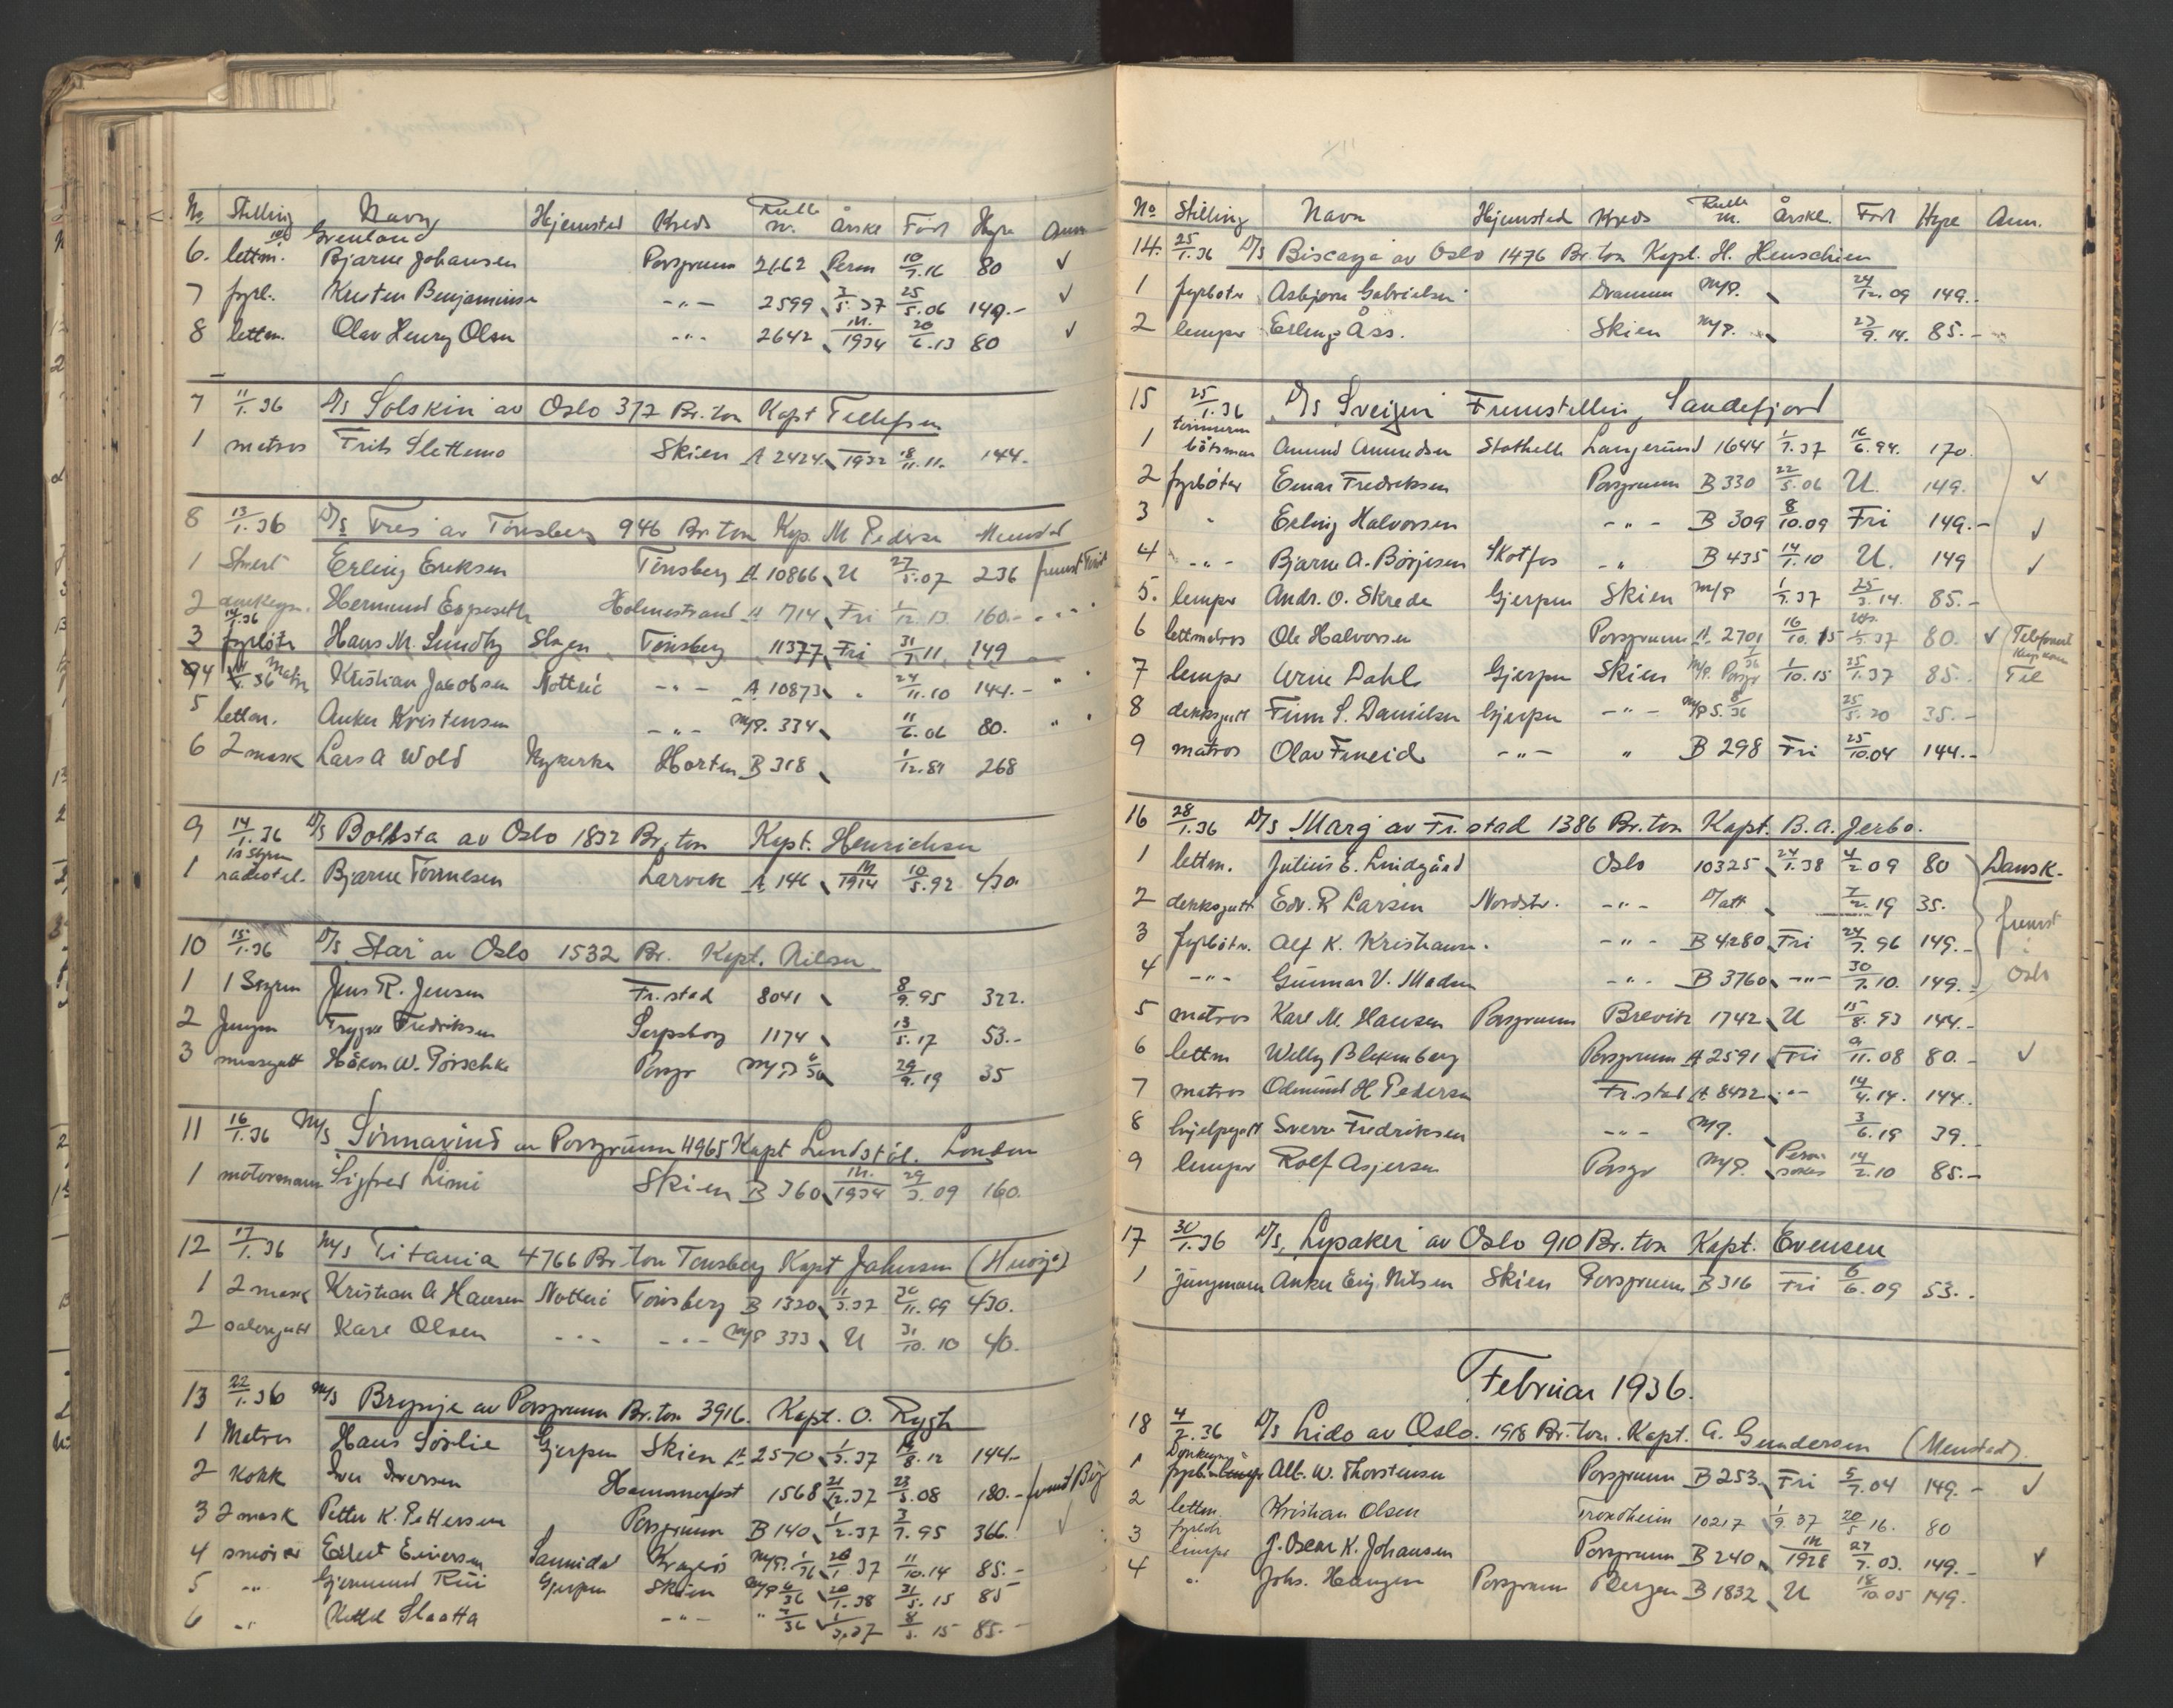 No Stilling Navn Hjemsted Kreds Rulle nr. Årskl Født Hyre Anm
Grenland
6. lettm. Bjarne Johansen Porsgrunn 2162 Perm 10/7.16 80 ✓
7 fyrb. Kristen Benjaminsen -"- 2599 3/5.37 25/5.06 149.- ✓
8 lettm. Olav Henry Olsen -"- 2642 M./1934 20/6.13 80 ✓
7 11/1.36 D/s Solskin av Oslo 377 Br.ton Kapt Tellefsen
1 matros Frits Slettemo Skien A 2424 1932 18/11.11. 144.
8 13/1.36 D/s Fres av Tönsberg 946 Br ton Kap. M Pedersen Menstad
1 Stuert Erling Eriksen Tönsberg A 10866 U 27/5.07 236
2 donkeym. Hermund Holmestrand A 714 Fri 1/12.13 160.- " "
14/1.36
3 fyrböter Hans M. Sundby Slagen Tönsberg 11377 Fri 31/7.11 149
4 Matr Kristian Jacobsen Nötterö -"- A 10873 " 24/11.10 144.- " "
5 lettm. Anker Kristensen -"- M/P. 334 11/6.06 80. " "
6 2 mask Lars A Wold Nykirke Horten B 318 1/12.81 268
9 14/1.36 D/s Bollsta av Oslo 1832 Br.ton Kapt. Henrichsen
1 1s styrm radiotel. Bjarne Tönnesen Larvik A 146 M/1914 10/5.92 430.
10 15/1.36 D/s Star av Oslo 1532 Br. Kapt. Nilsen
1 1 Styrm Jens R. Jensen Fr.stad 8041 8/9.95 322.
2 Jungm Trygve Fredriksen Sarpsborg 1174 13/5.17 53.-
3 messegutt Håkon W. Pörschke Porsgr M/P 6/36 29/9.19 35
11 16/1.36 M/s Sönnavind av Porsgrunn 4965 Kapt Lindstöl. London
1 motormann Sigfred Limi Skien B 360 M./1934 29/3.09 160.
12 17/1.36 M/s Titania 4766 Br ton Tönsberg Kapt Jahnsen (Heröya)
1 2 mask Kristian A Hansen Nötterö Tönsberg B 1320 1/3.37 30/11.99 430.
2 salongutt Kare Olsen -"- -"- M/P 333 U 31/10.10 40.
13 22/1.36 M/s Brynje av Porsgrunn Br.ton 3916. Kapt. O. Rygh
1 Matros Hans Sörlie Gjerpen Skien A 2570 1/3.37 14/8.12 144.-
2 Kokk Iver Iversen Hammerfest 1568 21/12.37 23/5.08 180.-
3 2 mask Petter K. Pettersen Porsgrunn B 140 1/2.37 3/7.95 366. ✓
4 smörer Eilert Eiversen Sannidal Kragerö M/P. 1/36 20/1.37 11/10.14 85.-
5 -"- Gjermund Rui Gjerpen Skien M/P 6/36 20/1.38 31/5.15 85
6 -"- Kittel Slaatta -"- " 7/36 1/3.37 8/3.15 85.-
No Stilling Navn Hjemsted Kreds Rulle nr. Årskl. Født Hyre Anm.
14. 25/1.36 D/s Biscaya av Oslo 1476 Br.ton Kapt. H. Henschien
1 fyrböter Asbjörn Gabrielsen Drammen M/P. 24/12.09 149.-
2 lemper Erling Åss. Skien M/P. 27/9.14. 85.-
15 25/1.36 D/s Sveigen Fremstilling Sandefjord
1 tömmerm båtsman Amund Amundsen Stathelle Langesund 1644 1/7.37 16/6.94. 170.
2 fyrböter Einar Fredriksen Porsgrunn B 330 22/5.06 U. 149. ✓
3 " Erling Halvorsen -"- B 309 8/10.09 Fri 149.- ✓
4 -"- Bjarne A. Börjesen Skotfos -"- B 435 14/7.10 U. 149 ✓
5. lemper Andr. O. Skrede Gjerpen Skien M/P 1/7.37 25/3.14. 85.-
6 lettmatros Ole Halvorsen Porsgrunn A 2701 16/10.15 37 80. ✓
7 lemper Arne Dahl Gjerpen Skien M/P. Porsgr 1/36 1/10.15 25/1.37 85. Tel
8 dekksgutt Finn S. Danielsen Gjerpen -"- M/P S. 8/36 25/5.20 35.-
9 matros Olav Fineid -"- " B 298 Fri 25/10.04 144.-
16 28/1.36 D/s Marg av Fr.stad 1386 Br.ton Kapt. B. A. Jerbo.
1 lettm. Julius E. Lindgård Oslo 10325 24/1.38 4/2 09 80 Dansk.
2 dekksgutt Edv. R Larsen Nordstr. -"- D/att 7/2.19 35.
3 fyrbötr. Alf K. Kristians. -"- B 4280 Fri 24/7.96 149.- fremst
4 -"- Gunnar V. Madsen -"- B 3760 -"- 30/7.10. 149.- Oslo
5 matros Karl M. Hansen Porsgrunn Brevik 1742 U 15/8.93 144.-
6 lettm Willy Blekenberg Porsgrunn A 2591 Fri 9/11.08 80.- ✓
7 matros Odmund H. Pedersen Fr.stad A 8422 -"- 14/4.14. 144.
8 hjelpegutt Sverre Fredriksen -"- M/P. 3/6.19 39.-
9 lemper Rolf Asjersen Porsgr M/P. 14/2.10 85.-
17 30/1.36 D/s Lysaker av Oslo 910 Br.ton Kapt. Evensen
1 jungmann Anker Eng. Nilsen Skien Porsgrunn B 316 Fri 6/6.09 53..
Februar 1936.
18 4/2.36 D/s Lido av Oslo. 1918 Br.ton. Kapt. A. Gundersen (Menstad).
1 Donkeym fyrb. Alb. W. Thorstensen Porsgrunn B 253. Fri 5/7.04 149.- ✓
2 lettm. Kristian Olsen Trondheim 10217 1/9.37 20/5 16. 80
3 fyrböt lemper J. Oscar K. Johansen Porsgrunn B 240 M/1928 27/7.03. 149.- ✓
4 " Johs. Haugen Porsgrunn Bergen B 1832 U 18/10.05 149.